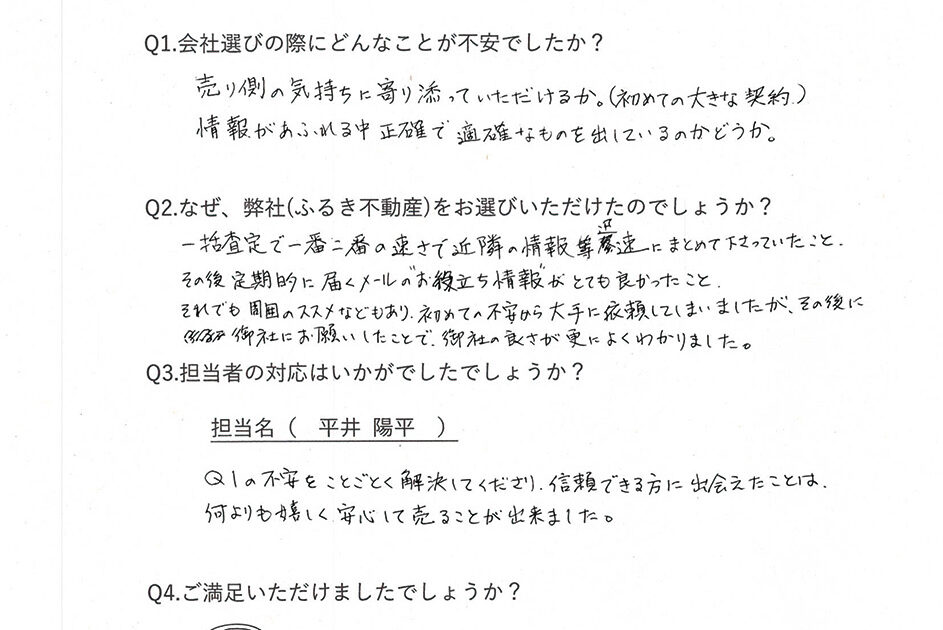 Q1.会社選びの際にどんなことが不安でしたか？
売り側の気持ちに寄り添っていただけるか。(初めての大きな契約.)
情報があふれる中 正確で 適確なものを出しているのかどうか。
Q2.なぜ、弊社(ふるき不動産)をお選びいただけたのでしょうか？
一括査定で一番二番の速さで近隣の情報等迅速にまとめて下さっていたこと.
その後 定期的に 届くメールの"お役立ち情報"がとても良かったこと.
それでも周囲のススメなどもあり.初めての不安から大手に依頼してしまいましたが、その後に
御社にお願いしたことで、御社の良さが更によくわかりました。
Q3.担当者の対応はいかがでしたでしょうか？
担当名（ 平井 陽平 ）
Q1の不安をことごとく解決してくださり.信頼できる方に出会えたことは.
何よりも嬉しく安心して売ることが出来ました。
Q4.ご満足いただけましたでしょうか？